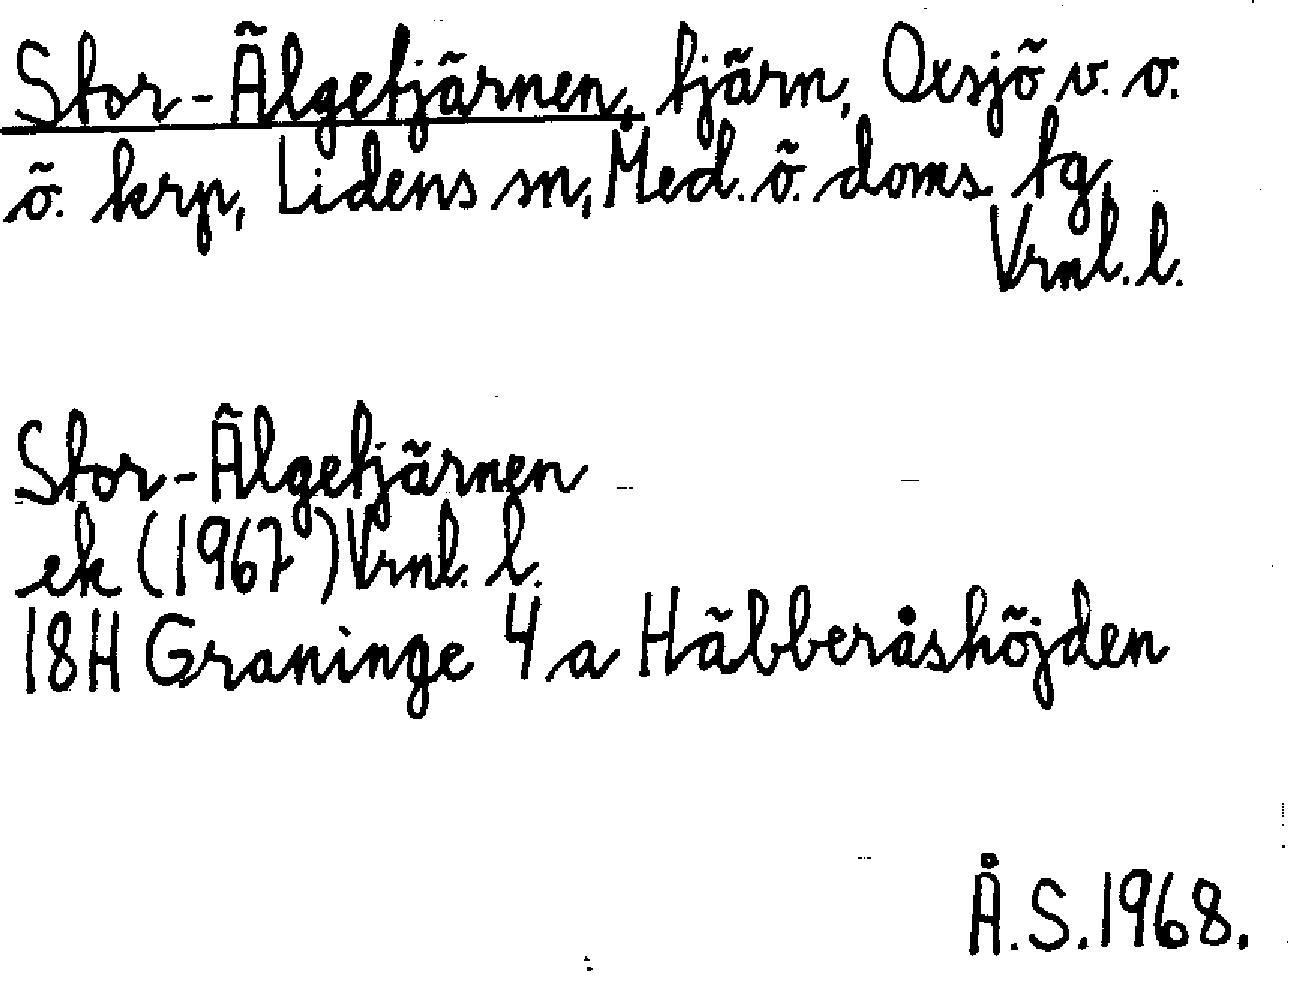 Stor-Älgetjärnen, tjärn, Oxsjö v. o.
ö. krp, Lidens sn, Med. ö. doms. tg,
Vrnl. l.
Stor-Älgetjärnen
ek (1967) Vrnl. l.
18H Graninge 4 a Häbberåshöjden
Å.S.1968.